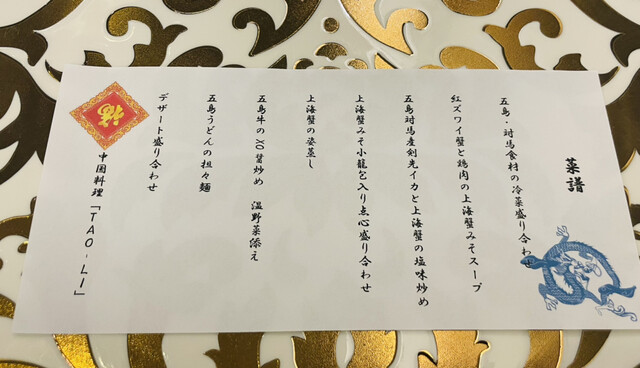 菜譜
五島・対馬食材の冷菜盛り合わせ
紅ズワイ蟹と鶏肉の上海蟹みそスープ
五島対馬産剣先イカと上海蟹の塩味炒め
上海蟹みそ小龍包入り点心盛り合わせ
上海蟹の姿蒸し
五島牛のXO醤炒め　温野菜添え
五島うどんの担々麺
デザート盛り合わせ
福
中国料理「TAO-LI」